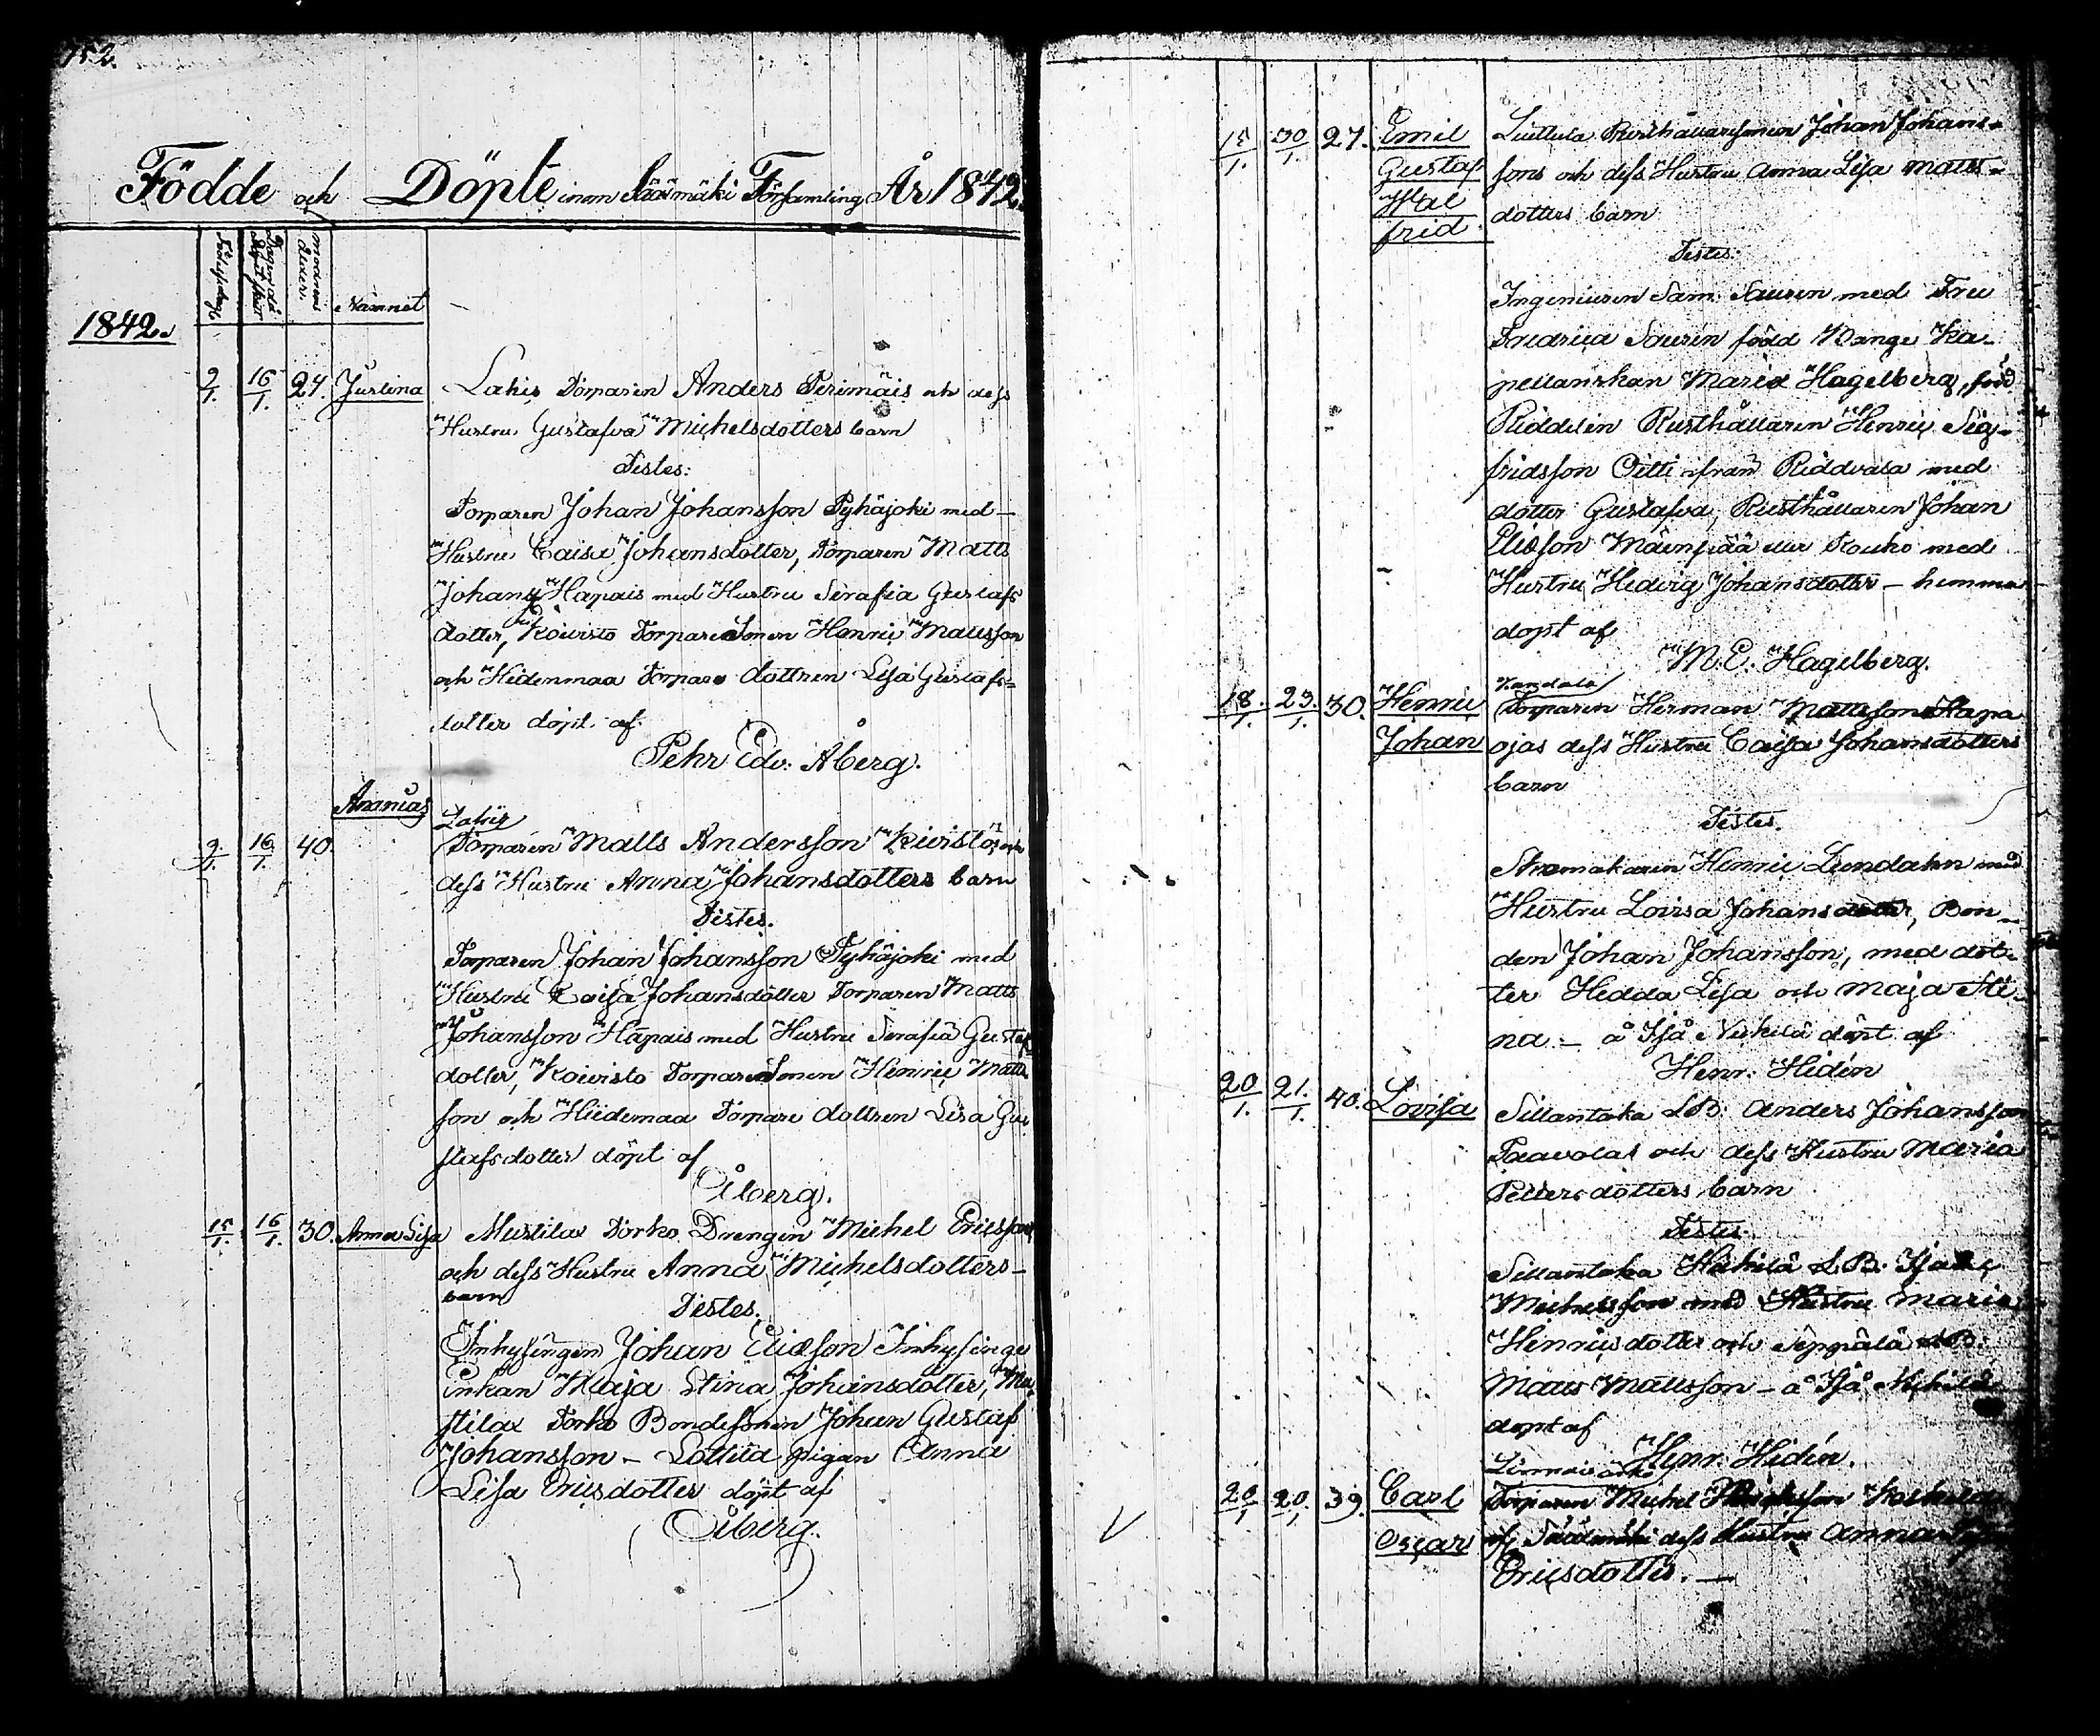 152.
Födde och Döpte inom Sääxmäki Församling År 1842.
Födelsedag Dagen då döpt moderns ålder. Namnet
1842.
9/1. 16/1. 24. Justina Lahis Torparen Anders Perimäis och dess
Hustru Gustafva Michelsdotters barn
Testes:
Torparen Johan Johansson Pyhäjoki med
Hustru Caisa Johansdotter, Torparen Matts
Johans Hapais med Hustru Serafia Gustafs
dotter, Koivisto Torpare Sonen Henric Mattsson
och Hidenmaa Torpare dottren Lisa Gustafs=
dotter döpt af
Pehr Edv. Åberg.
Ananias Lahis
9/1. 16/1. 40. Torparen Matts Andersson Kivistös och
dess Hustru Anna Johansdotters barn
Testes.
Torparen Johan Johansson Pyhäjoki med
Hustru Caisa Johansdotter Torparen Matts
Johansson Hapais med Hustru Serafia Gustaf
dotter, Koivisto Torpare Sonen Henric Matts
son och Hiidemaa Torpare dottren Lisa Gus
stafsdotter döpt af
Åberg.
15/1. 16/1. 30. Anna Lisa Mustila Torko Drengen Michel Ericsson
och dess Hustru Anna Michelsdotters
barn
Testes.
Inhysingen Johan Eliasson Inhysinge
Enkan Maja Stina Johansdotter, Mu
stila Torko Bondesonen Johan Gustaf
Johansson - Lottila pigan Anna
Lisa Ericsdotter döpt af
Åberg.
15/1. 30/1. 27. Emil Luttula Rusthållaresonen Johan Johans=
Gustaf sons och dess Hustru Anna Lisa Matts=
Hjal dotters barn
frid.
Testes:
Ingeniuren Sam. Saurén med Fru
Fredrica Saurén född Wange Ka-
pellanskan Maria Hagelberg, född
Riddelin Rusthållaren Henric Sig-
fridsson Oitti ifrån Riddvala med
dotter Gustafva, Rusthållaren Johan
Eliasson Mäenpää eller Kouko med
Hustru Hedvig Johansdotter - hemma
döpt af
M. E. Hagelberg.
18/1. 23/1. 30. Henric Torparen Herman Mattsson Hapa
Johan ojas dess Hustru Caisa Johansdotters
barn
Testes.
Skomakaren Henric Lundahn med
Hustru Lovisa Johansdotter, Bon-
den Johan Johansson, med dot-
ter Hedda Lisa och Maja Sti-
na - döpt af
Henr. Hidén
20/1. 21/1. 40. Lovisa Sillantaka LB. Anders Johansson
Paavolas och dess Hustru Maria
Pettersdotters barn
Testes.
Sillantaka LB.
Michelsson med Hustru Maria
Henricsdotter och Seppälä LB.
Matts Mattsson - döpt af
Henr. Hidén.
20/1. 20/1. 39. Carl Torparen Michel
Oscar dess Hustru
Ericsdotter. -